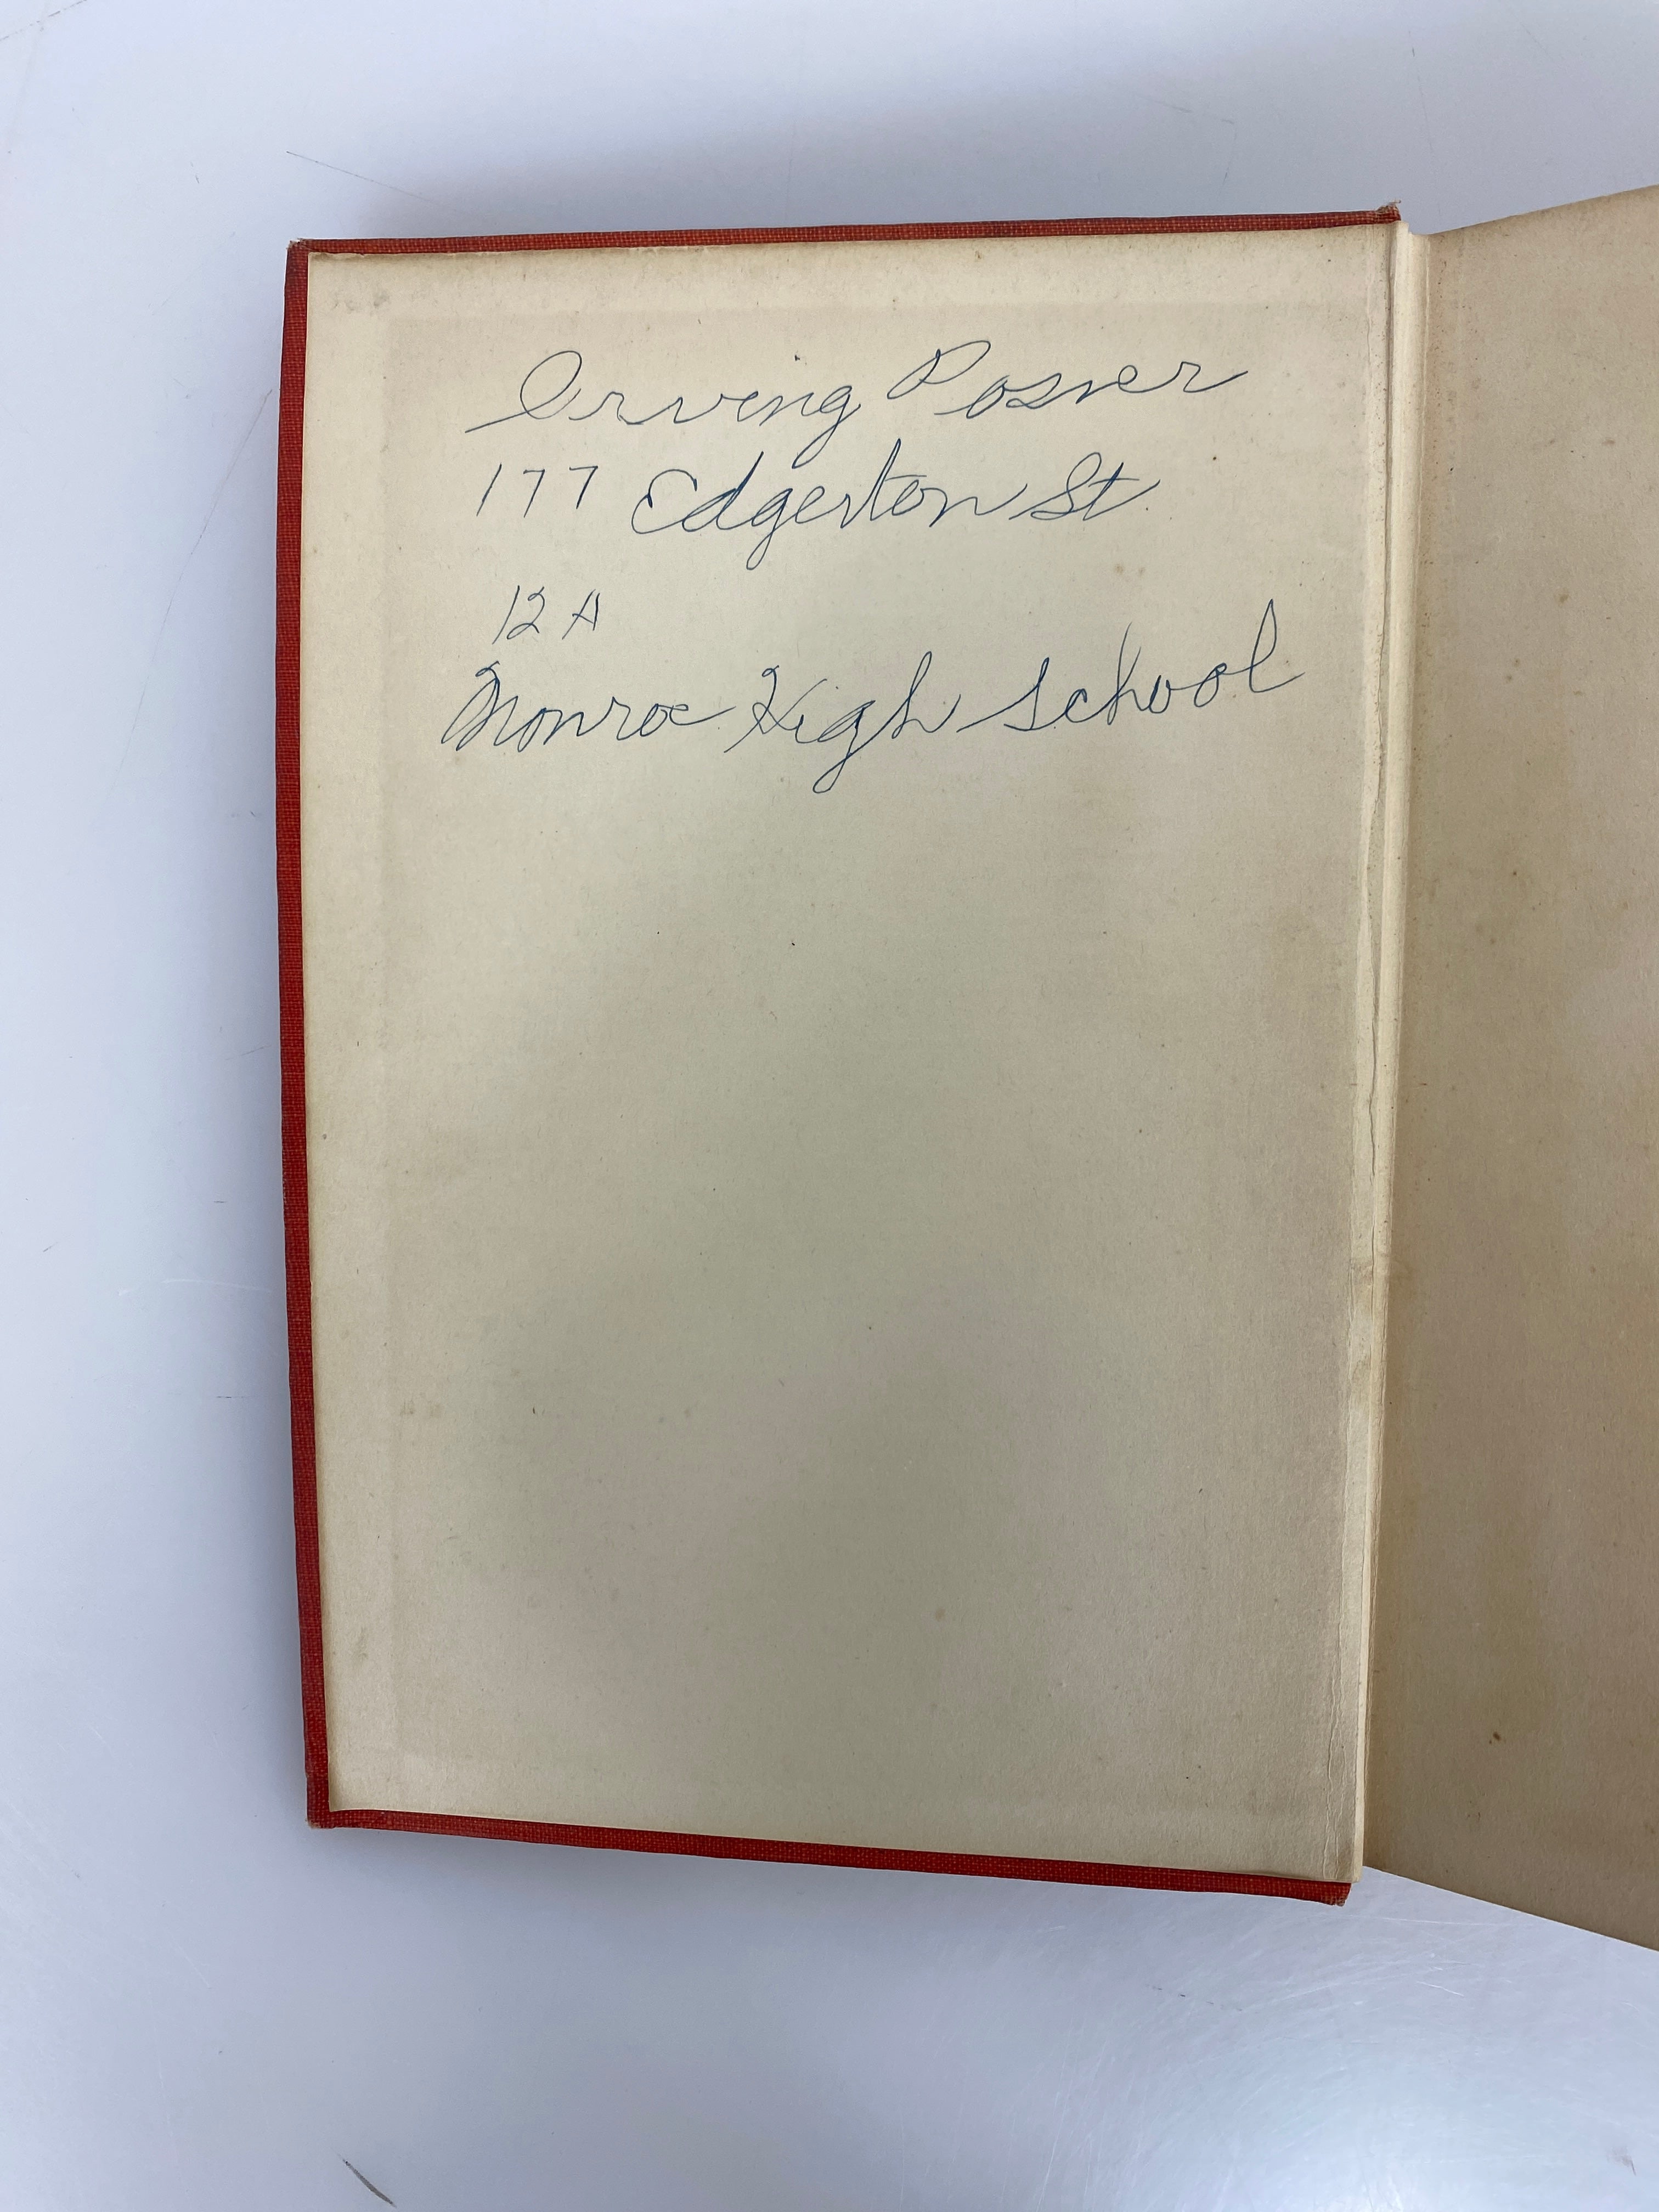 Irving Posner
177 Edgerton St
12 A
Monroe High School